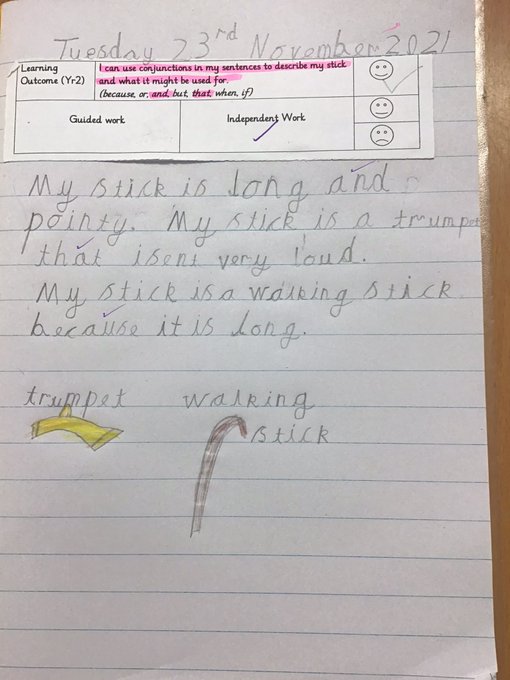 Tuesday 23rd November 2021
Learning Outcome (Yr2)
I can use conjunctions in my sentences to describe my stick and what it might be used for.
(because, or, and, but, that, when, if)
Guided work
Independent Work
My stick is long and
pointy. My stick is a trumpet
that isent very loud.
My stick is a walking stick
because it is long.
trumpet
walking
stick